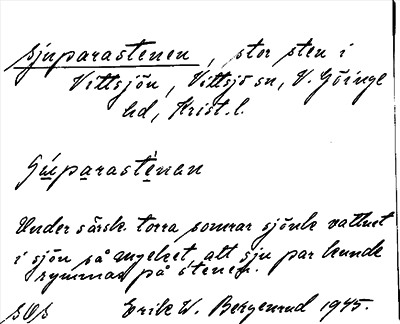 sjuparastenen, stor sten i
Vittsjön, Vittsjö sn, V. Göinge
hd, Krist. l.
Sjúparastènan
Under särsk. torra somrar sjönk vattnet
i sjön så mycket, att sju par kunde
rymmas på stenen.
Erik W. Bergenrud 1945.